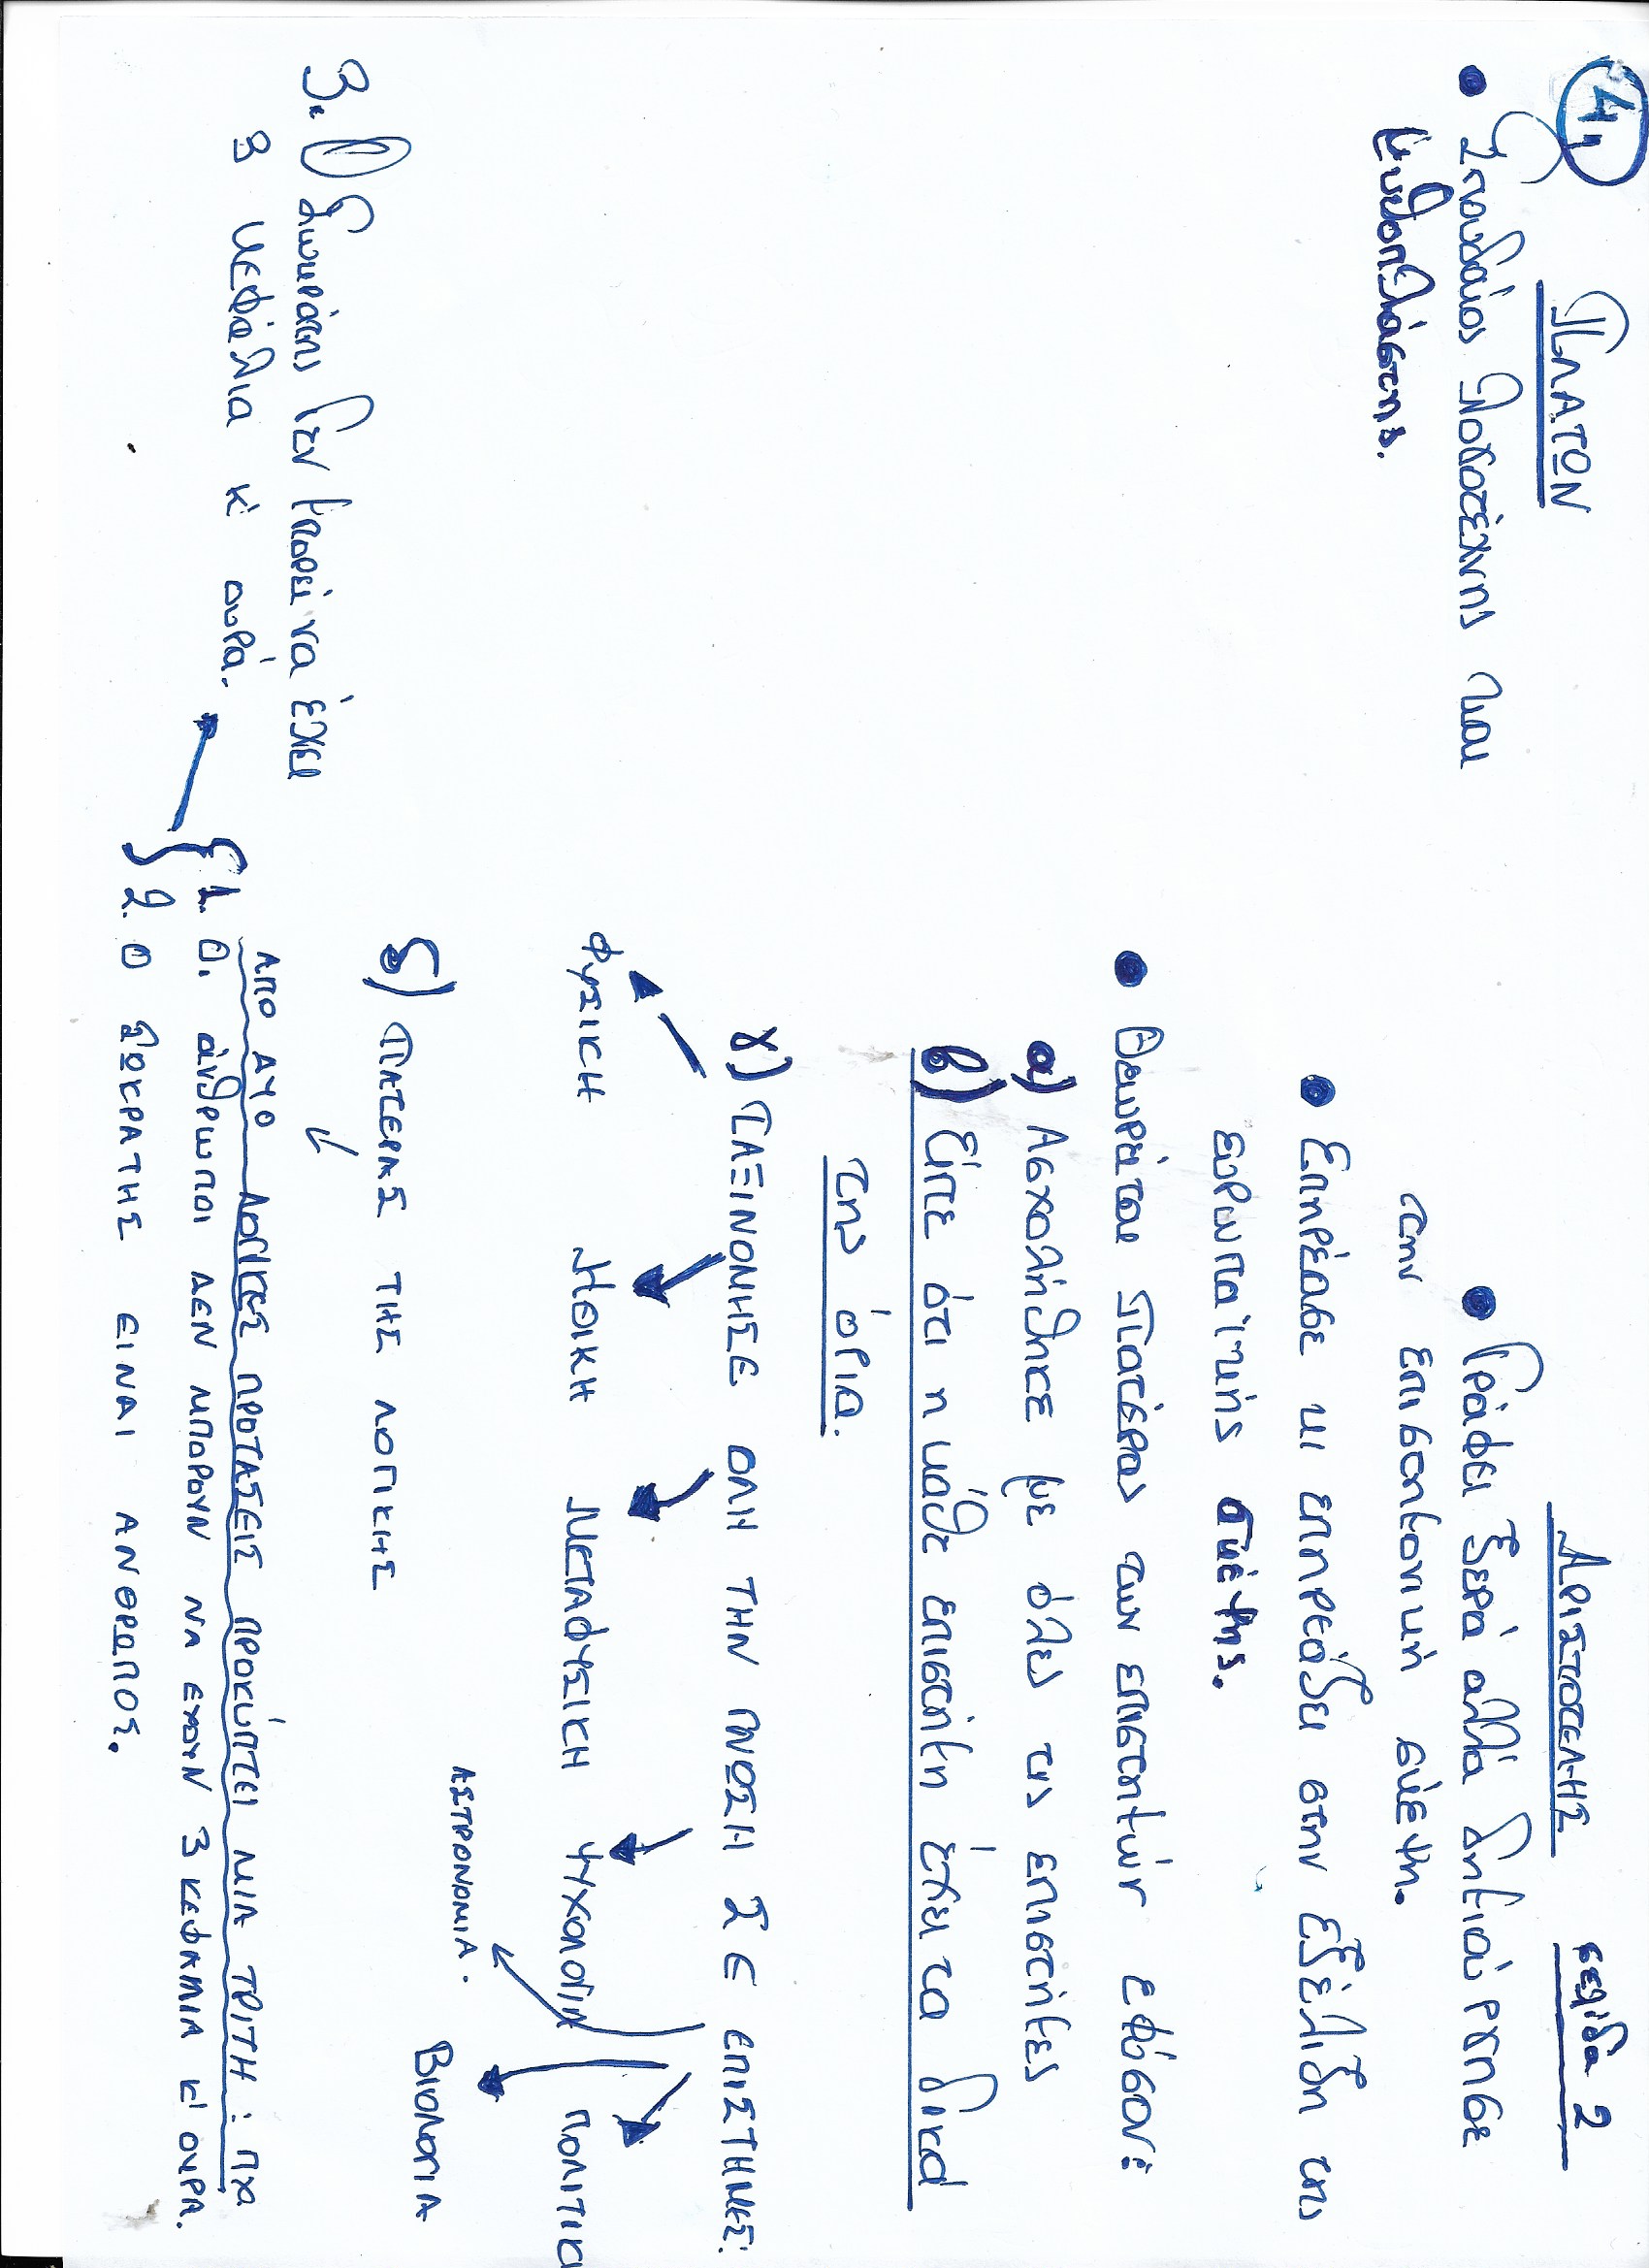 4,
ΠΛΑΤΩΝ
• Σπουδαίος λογοτέχνης και
μυθοπλάστης.
ΑΡΙΣΤΟΤΕΛΗΣ
σελίδα 2
• Γράφει ξερά αλλά δημιούργησε
την επιστημονική σκέψη.
• Επηρέασε κι επηρεάζει στην εξέλιξη της
ευρωπαϊκής σκέψης.
• Θεωρείται πατέρας των επιστημών εφόσον:
α) Ασχολήθηκε με όλες τις επιστήμες
β) Είπε ότι η κάθε επιστήμη έχει τα δικά
της όρια.
γ) ΤΑΞΙΝΟΜΗΣΕ ΟΛΗ ΤΗΝ ΓΝΩΣΗ ΣΕ ΕΠΙΣΤΗΜΕΣ:
ΦΥΣΙΚΗ ΗΘΙΚΗ ΜΕΤΑΦΥΣΙΚΗ ΨΥΧΟΛΟΓΙΑ ΠΟΛΙΤΙΚΑ
ΑΣΤΡΟΝΟΜΙΑ.
ΒΙΟΛΟΓΙΑ
δ) ΠΑΤΕΡΑΣ ΤΗΣ ΛΟΓΙΚΗΣ
ΑΠΟ ΔΥΟ ΛΟΓΙΚΕΣ ΠΡΟΤΑΣΕΙΣ ΠΡΟΚΥΠΤΕΙ ΜΙΑ ΤΡΙΤΗ: ΠΧ
1. Ο. άνθρωποι ΔΕΝ ΜΠΟΡΟΥΝ ΝΑ ΕΧΟΥΝ 3 ΚΕΦΑΛΙΑ Κ' ΟΥΡΑ.
2. Ο ΣΩΚΡΑΤΗΣ ΕΙΝΑΙ ΑΝΘΡΩΠΟΣ.
3. Ο Σωκράτης δεν μπορεί να έχει
3 κεφάλια κ' ουρά.